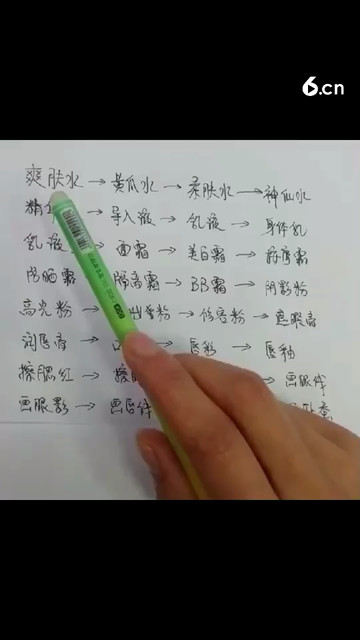 6.cn
爽肤水→黄瓜水→柔肤水→神仙水
精 →导入液→乳液→身体乳
乳液→面霜→美白霜
防晒霜→隔离霜→BB霜→阴影粉
高光粉→ 粉→修容粉→遮眼膏
润唇膏→ →唇彩→唇釉
擦腮红→擦 →画眼线
画眼影→画唇线